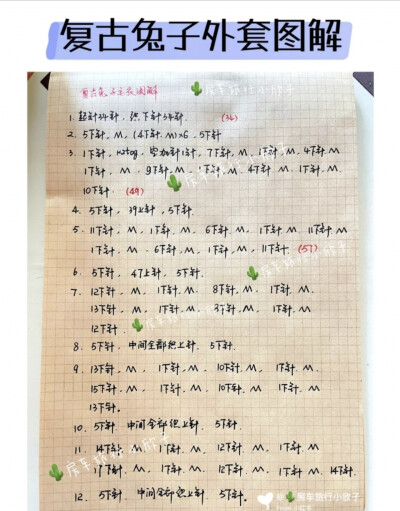 复古兔子外套图解
复古兔子毛衣图解
1. 起针34针，织下针34针. (34)
2. 5下针, M, (4下针.M)×6, 5下针
3. 1下针, k2tog, 空加针1针, 7下针, M, 1下针, M, 4下针 M
1下针, M, 9下针, M, 1下针, M, 4下针 M, 1下针, M,
10下针. (49)
4. 5下针, 39上针, 5下针.
5. 11下针, M, 1下针, M, 6下针, M, 1下针, M, 11下针 M
1下针, M, 6下针, M, 1下针, M, 11下针 (57)
6. 5下针, 47上针, 5下针.
7. 12下针, M, 1下针, M, 8下针, M, 1下针, M,
13下针, M, 1下针, M, 8下针, M, 1下针, M
12下针.
8. 5下针, 中间全部织上针, 5下针.
9. 13下针, M, 1下针, M, 10下针, M, 1下针, M,
15下针, M, 1下针, M, 10下针, M 1下针, M
13下针.
10. 5下针, 中间全部织上针, 5下针.
11. 14下针, M, 1下针, M, 12下针, M, 1下针, M
17下针, M, 1下针, M, 12下针, M, 1下针, M, 14下针.
12. 5下针, 中间全部织上针, 5下针.
房车旅行小欣子